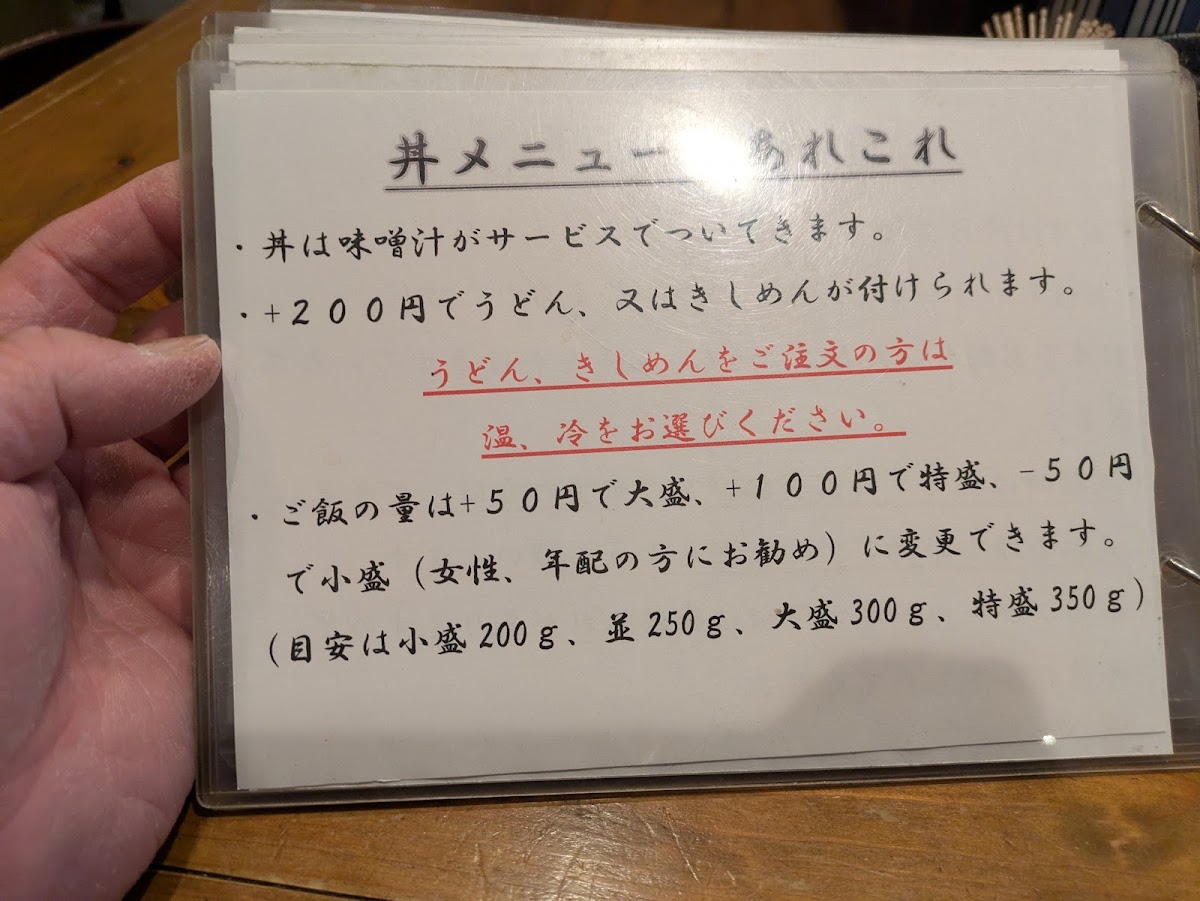 丼メニュー あれこれ
・丼は味噌汁がサービスでついてきます。
・+２００円でうどん、又はきしめんが付けられます。
うどん、きしめんをご注文の方は
温、冷をお選びください。
・ご飯の量は+５０円で大盛、+１００円で特盛、-５０円
で小盛（女性、年配の方にお勧め）に変更できます。
（目安は小盛200ｇ、並250ｇ、大盛300ｇ、特盛350ｇ）